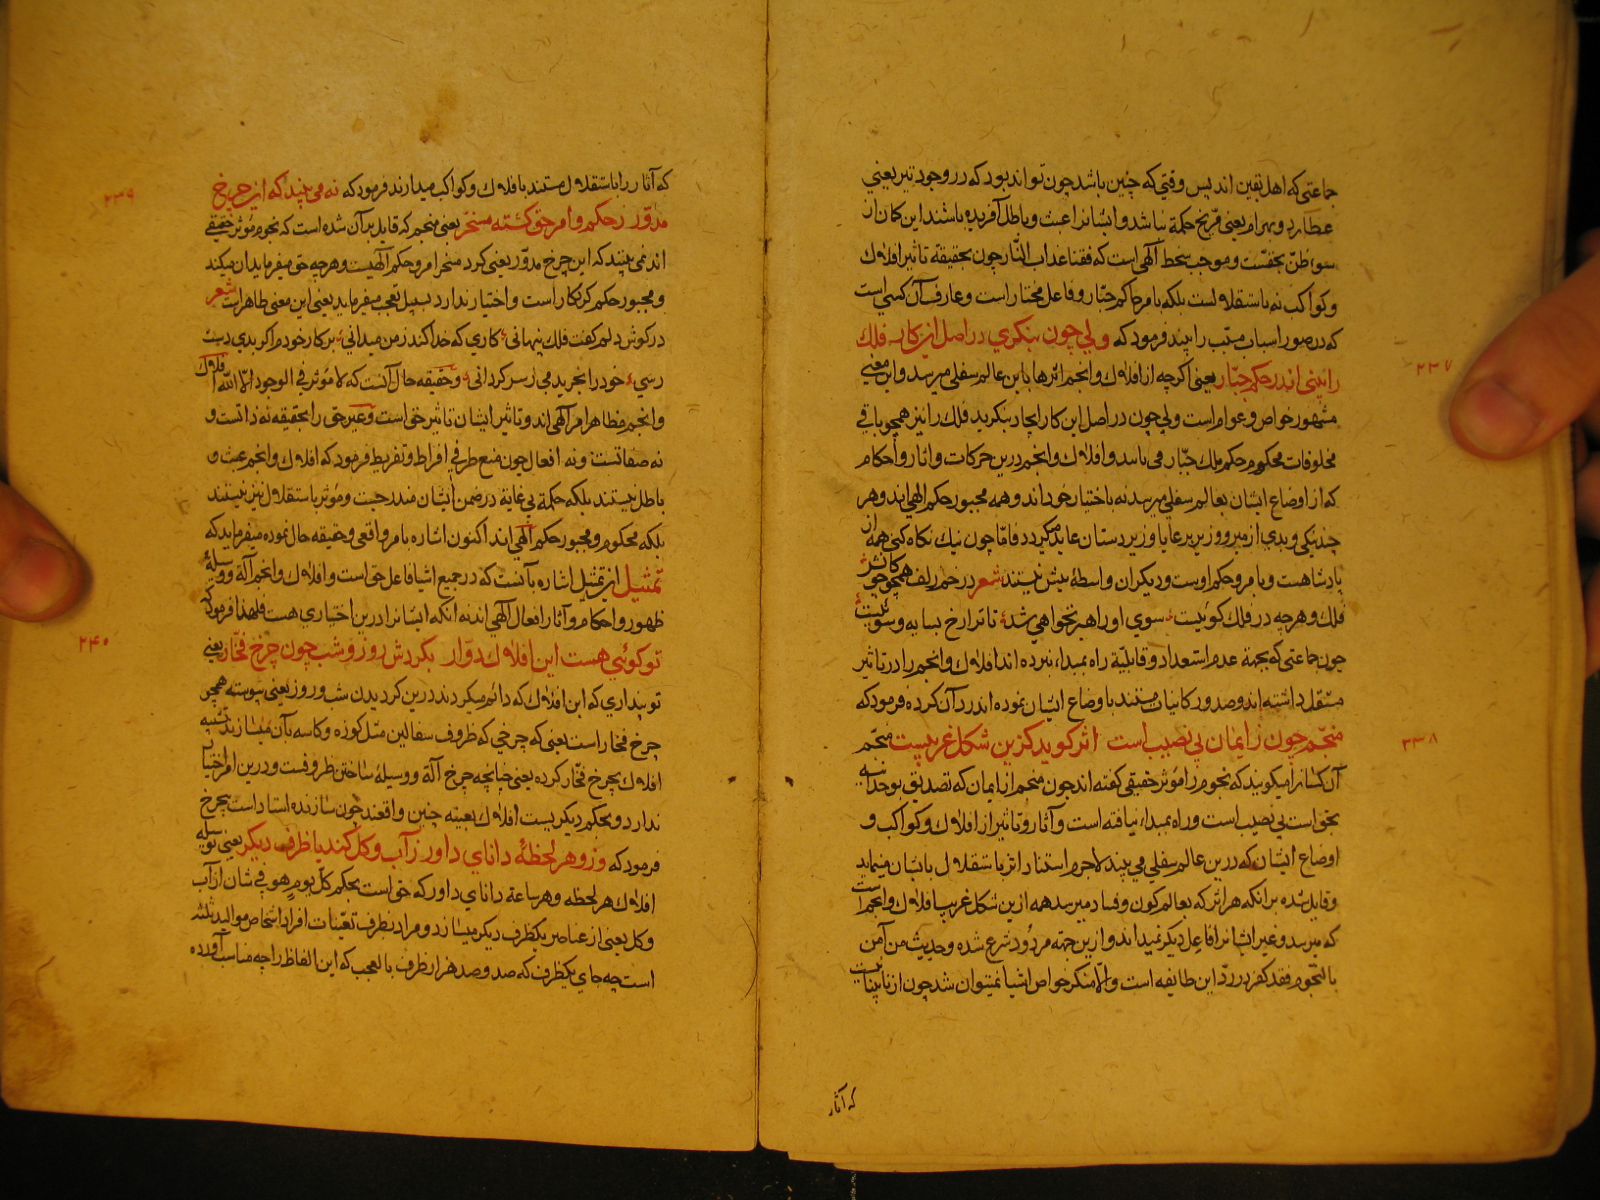 جماعتی که اهل یقین اند پس وقتی که چنین باشد چون تواند بود که در وجود تیر یعنی
عطارد و بهرام یعنی مریخ حکمة نباشد و ایشانرا عبث و باطل آفریده باشند این کمان از
سوء ظن بحقست و موجب سخط آلهی است که فقنا عذاب النّار چون بحقیقة تاثیر افلاک
و کواکب نه باستقلال است بلکه بامر حاکم جبّار و فاعل مختار است و عارف آن کسی است
که در صور اسباب مسبّب را بیند فرمود که ولی چون بنکری در اصل این کار فلک
را بینی اندر حکم جبّار یعنی اکرچه از افلاک و انجم اثرها باین عالم سفلی میرسد و این معنی
مشهور خواص و عوام است ولی چون در اصل این کار ایجاد بنکرید فلک را نیز همچو باقی
مخلوقات محکوم حکم ملک جبّار می یابید و افلاک و انجم درین حرکات و اثار و احکام
که از اوضاع ایشان بعالم سفلی میرسد نه باختیار خود اند و همه مجبور حکم الهی اند و هر
چند نیکی و بدی از میر و وزیر بر عایا و زیردستان عاید میکردد فامّا چون نیک نکاه کنی همه از
پادشاهست و بامر و حکم اوست و دیکران واسطهٔ بیش نیستند شعر در خم زلف همچو چوکانش
فلک و هرچه در فلک کوئیست سوی او راهبر نخواهی شد تا ترا رخ بسایه و سوئیست
چون جماعتی که بجهة عدم استعداد و قابلیّة راه بمبداء نبرده اند افلاک و انجم را در تاثیر
مستقل داشته اند و صدور کائنات مستند باوضاع ایشان نموده اند رد آن کرده فرمود که
منجّم چون ز ایمان بی نصیب است اثر کوید کزین شکل غریبست منجّم
آن کسانرا میکویند که نجوم را مؤثر حقیقی کفته اند چون منجم از ایمان که تصدیق بوحدانیة
حق است بی نصیب است و راه بمبداء نیافته است و آثار و تاثیر از افلاک و کواکب و
اوضاع ایشان که درین عالم سفلی می بیند لاجرم استناد اثر باستقلال بایشان مینماید
و قایل شده بر انکه هر اثر که بعالم کون و فساد میرسد همه ازین شکل غریب افلاک و انجم است
که میرسد و غیر ایشانرا فاعل دیکر نمیداند و ازین جهة مردود شرع شده و حدیث من آمن
بالنجوم فقد کفر در ردّ این طایفه است و الّا منکر خواص اشیا نمیتوان شد چون از نابینائیست
که آثار
۲۳۷
۲۳۸
که آثار را باستقلال مستند بافلاک و کواکب میدارند فرمود که نه می بیند که این چرخ
مدوّر ز حکم و امر حق کشته مسخّر یعنی منجم که قایل بدآن شده است که نجوم مؤثر حقیقی
اند نمی بیند که این چرخ مدوّر یعنی کرد مسخر امر و حکم آلهیست و هرچه حق میفرماید آن میکند
و مجبور حکم کردکار است و اختیار ندارد بسبیل تعجب میفرماید یعنی این معنی ظاهر است شعر
در کوش دلم کفت فلک پنهانی کاری که خدا کند ز من میدانی بر کار خودم اکر بدی دست
رسی خود را بخریدمی ز سرکردانی و حقیقه حال آنست که لا مؤثر فی الوجود الا الله افلاک
و انجم مظاهر امر آلهی اند و تاثیر ایشان تاثیر حق است و غیر حق را بحقیقه نه ذاتست و
نه صفاتست و نه افعال چون منع طرفی افراط و تفریط فرمود که افلاک و انجم عبث و
باطل نیستند بلکه حکمة بی غایة در ضمن ایشان مندرجست و مؤثر باستقلال نیز نیستند
بلکه محکوم و مجبور حکم آلهی اند اکنون اشاره بامر واقعی و حقیقه حال نموده میفرماید که
تمثیل این تمثیل اشاره بآنست که در جمیع اشیا فاعل حق است و افلاک و انجم آلة و وسیلة
ظهور و احکام و آثار افعال آلهی اند نه انکه ایشانرا درین اختیاری هست فلهذا فرمود که
تو کوئی هست این افلاک دوّار بکردش روز و شب چون چرخ فخّار یعنی
تو پنداری که این افلاک که دائم میکردند درین کردیدن شب و روز یعنی پیوسته همچو
چرخ فخار است یعنی که چرخی که ظروف سفالین مثل کوزه و کاسه بآن میسازند تشبیه
افلاک بچرخ فخّار کرده یعنی چنانچه چرخ آلة و وسیلهٔ ساختن ظروفست و درین امر اختیار
ندارد و بحکم دیکریست افلاک بعینه چنین واقعند چون سازنده استاد است بچرخ
فرمود که وزو هر لحظهٔ دانای داور ز آب و کل کند یک ظرف دیکر یعنی بوسیله
افلاک هر لحظه و هر ساعة دانای داور که حق است بحکم کل یوم هو فی شان از آب
و کل یعنی از عناصر یک ظرف دیکر میسازد و مراد بظرف تعیّنات افراد اشخاص موالید ثلثه
است چه جای یک ظرف که صد و صد هزار ظرف بالعجب که این الفاظ را چه مناسب آورده
۲۳۹
۲۴۰